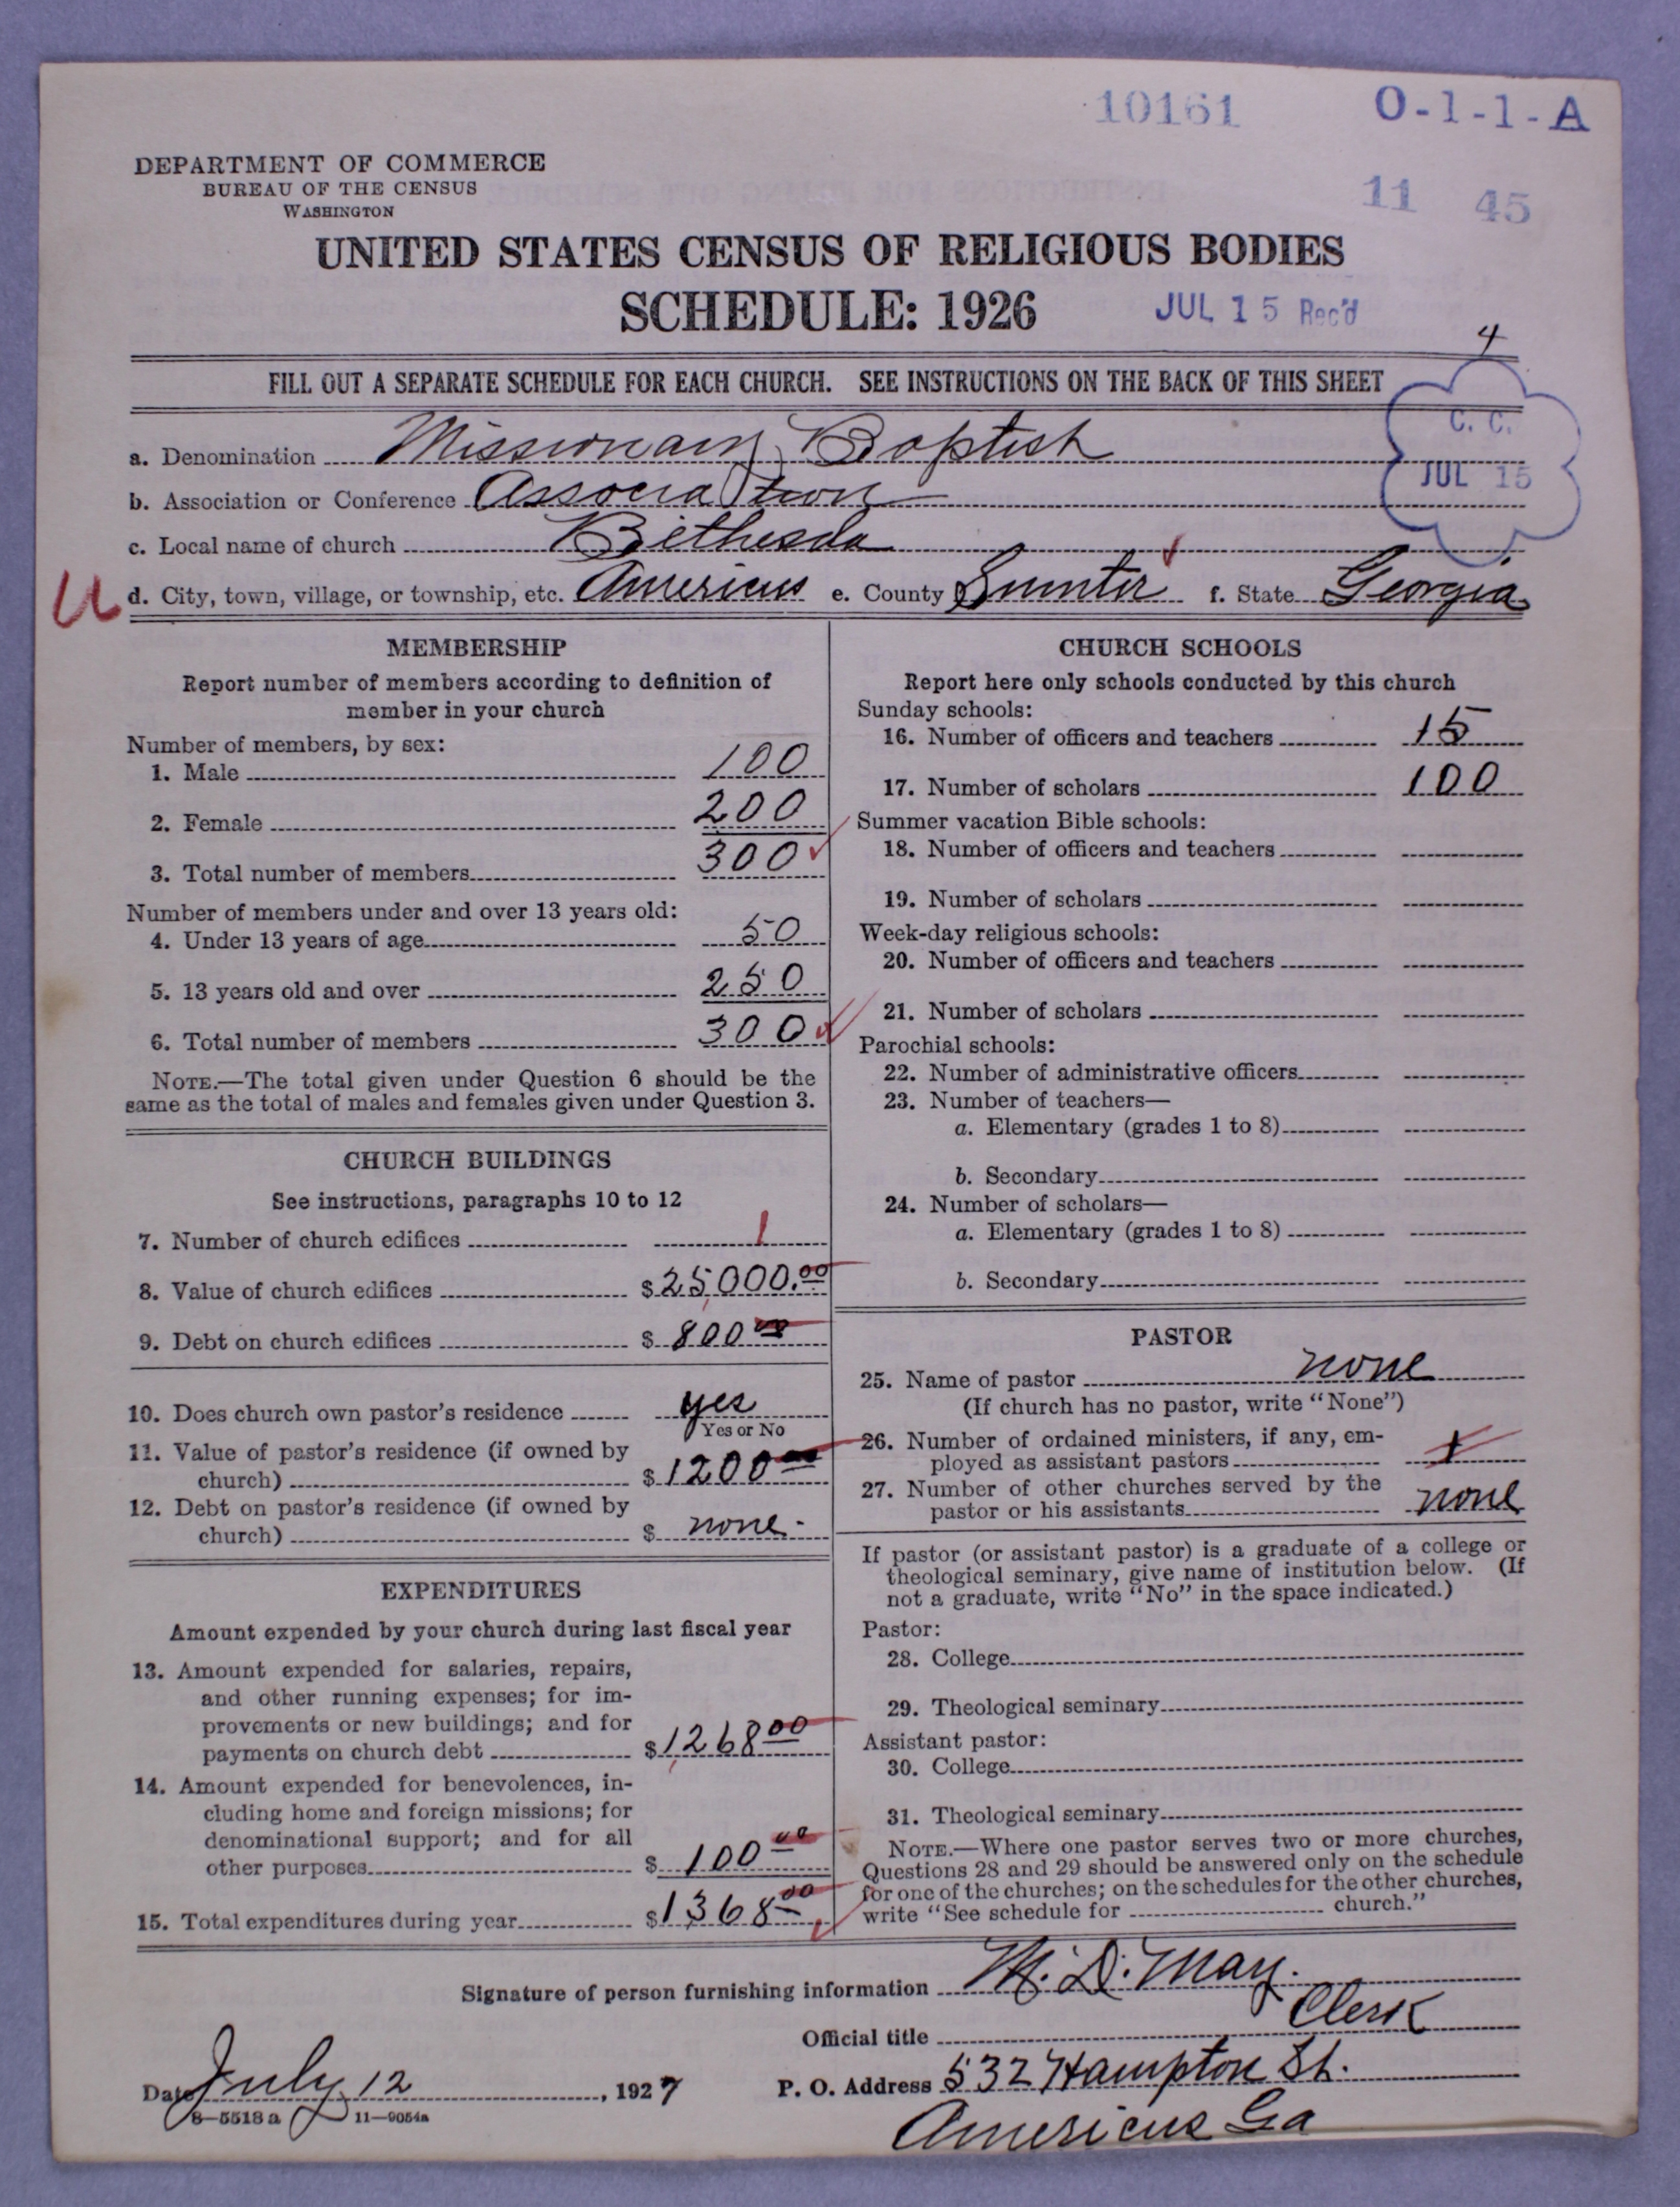 10161 O-1-1-A
DEPARTMENT OF COMMERCE
BUREAU OF THE CENSUS
WASHINGTON
11 45
UNITED STATES CENSUS OF RELIGIOUS BODIES
SCHEDULE: 1926 JUL 15 Rec'd
4
FILL OUT A SEPARATE SCHEDULE FOR EACH CHURCH. SEE INSTRUCTIONS ON THE BACK OF THIS SHEET
C. C.
JUL 15
a. Denomination Missionary Baptist
b. Association or Conference Association
c. Local name of church Bethesda
U d. City, town, village, or township, etc. Americus e. County Sumter f. State Georgia
MEMBERSHIP
Report number of members according to definition of
member in your church
Number of members, by sex:
1. Male 100
2. Female 200
3. Total number of members 300
Number of members under and over 13 years old:
4. Under 13 years of age 50
5. 13 years old and over 250
6. Total number of members 300
NOTE.—The total given under Question 6 should be the
same as the total of males and females given under Question 3.
CHURCH BUILDINGS
See instructions, paragraphs 10 to 12
7. Number of church edifices 1
8. Value of church edifices $25,000.00
9. Debt on church edifices $ 800 00
10. Does church own pastor's residence yes
Yes or No
11. Value of pastor's residence (if owned by
church) $1200 00
12. Debt on pastor's residence (if owned by
church) $ none.
EXPENDITURES
Amount expended by your church during last fiscal year
13. Amount expended for salaries, repairs,
and other running expenses; for im-
provements or new buildings; and for
payments on church debt $1,268 00
14. Amount expended for benevolences, in-
cluding home and foreign missions; for
denominational support; and for all
other purposes $ 100 00
15. Total expenditures during year $1,368 00
CHURCH SCHOOLS
Report here only schools conducted by this church
Sunday schools:
16. Number of officers and teachers 15
17. Number of scholars 100
Summer vacation Bible schools:
18. Number of officers and teachers
19. Number of scholars
Week-day religious schools:
20. Number of officers and teachers
21. Number of scholars
Parochial schools:
22. Number of administrative officers
23. Number of teachers—
a. Elementary (grades 1 to 8)
b. Secondary
24. Number of scholars—
a. Elementary (grades 1 to 8)
b. Secondary
PASTOR
25. Name of pastor none
(If church has no pastor, write "None")
26. Number of ordained ministers, if any, em-
ployed as assistant pastors
27. Number of other churches served by the
pastor or his assistants none
If pastor (or assistant pastor) is a graduate of a college or
theological seminary, give name of institution below. (If
not a graduate, write "No" in the space indicated.)
Pastor:
28. College
29. Theological seminary
Assistant pastor:
30. College
31. Theological seminary
NOTE.—Where one pastor serves two or more churches,
Questions 28 and 29 should be answered only on the schedule
for one of the churches; on the schedules for the other churches,
write "See schedule for church."
Signature of person furnishing information M. D. May.
Official title Clerk
Date July 12, 1927 P. O. Address 532 Hampton St.
8—5518 a 11—9054a
Americus Ga